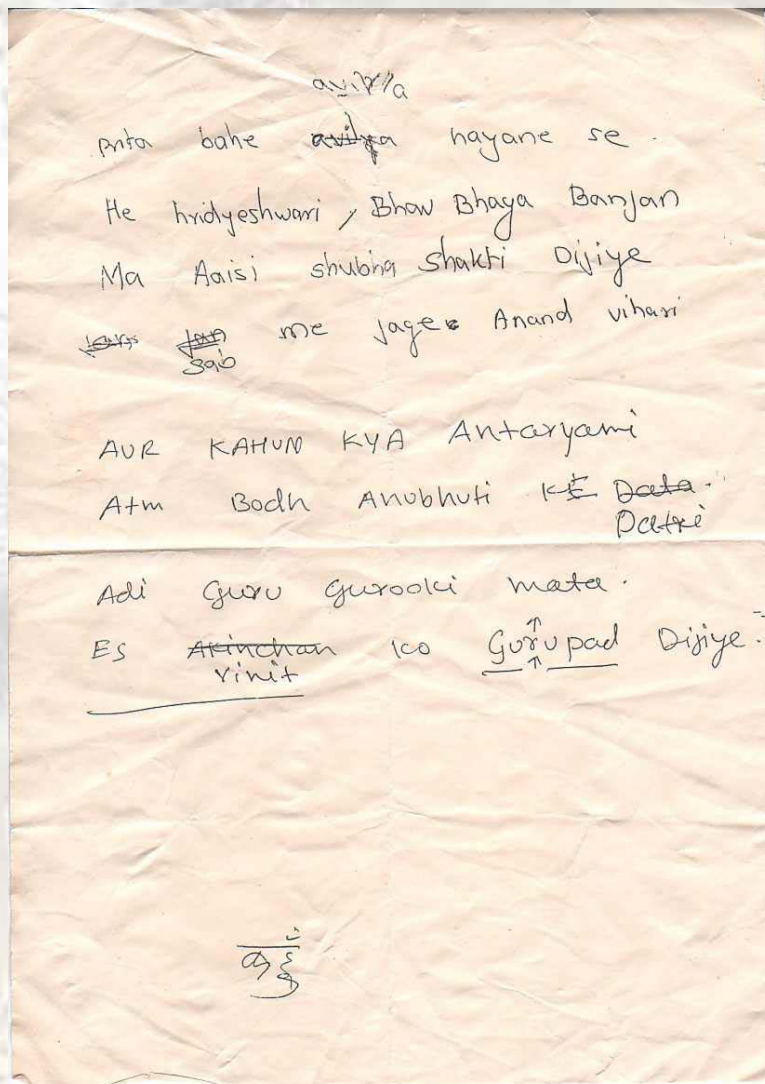 avirla
prita bahe avilya nayane se.
He hridyeshwari, Bhav Bhaya Banjan
Ma Aaisi shubha Shakti Dijiye
jan me jage Anand vihari
sab
AUR KAHUN KYA Antaryami
Atm Bodh Anubhuti KE Data.
Datri
Adi Guru Gurooki mata.
ES Akinchan ko Gurupad Dijiye.
vinit